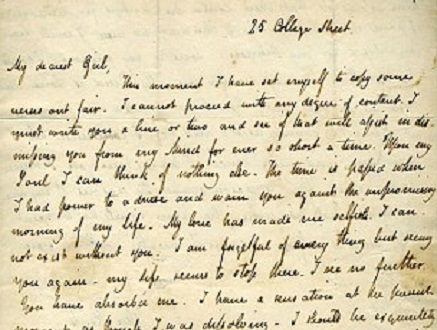 25 College Street
My dearest Girl,
This moment I have set myself to copy some
verses out fair. I cannot proceed with any degree of content. I
must write you a line or two and see if that will assist in dis-
missing you from my Mind for ever so short a time. Upon my
Soul I can think of nothing else. The time is passed when
I had power to advise and warn you against the unpromising
morning of my life. My love has made me selfish. I can
not exist without you. I am forgetful of every thing but seeing
you again. my life seems to stop there. I see no further.
You have absorb'd me. I have a sensation at the present
moment as though I was dissolving. I should be exquisitely